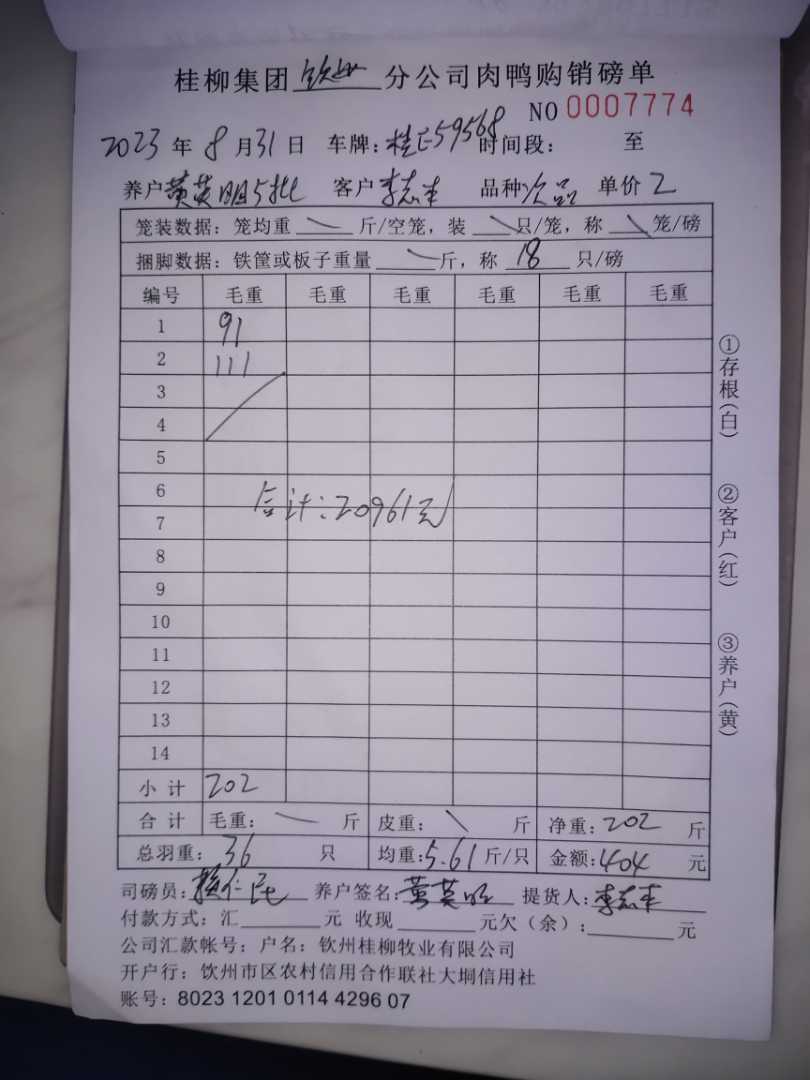 桂柳集团钦州分公司肉鸭购销磅单
NO 0007774
2023年8月31日 车牌:桂E59568 时间段: 至
养户黄英明5批 客户李志丰 品种次品 单价2
笼装数据:笼均重 斤/空笼,装 只/笼,称 笼/磅
捆脚数据:铁筐或板子重量 斤,称 18 只/磅
编号 毛重 毛重 毛重 毛重 毛重 毛重
1 91
2 111
3
4
5
6
合计:20961元
7
8
9
10
11
12
13
14
小计 202
合计 毛重: 斤 皮重: 斤 净重:202 斤
总羽重:36 只 均重:5.61斤/只 金额:404 元
司磅员:赖仁民 养户签名:黄英明 提货人:李志丰
付款方式:汇 元 收现 元欠(余): 元
公司汇款帐号:户名:钦州桂柳牧业有限公司
开户行:钦州市区农村信用合作联社大垌信用社
账号:8023 1201 0114 4296 07
①存根(白)
②客户(红)
③养户(黄)